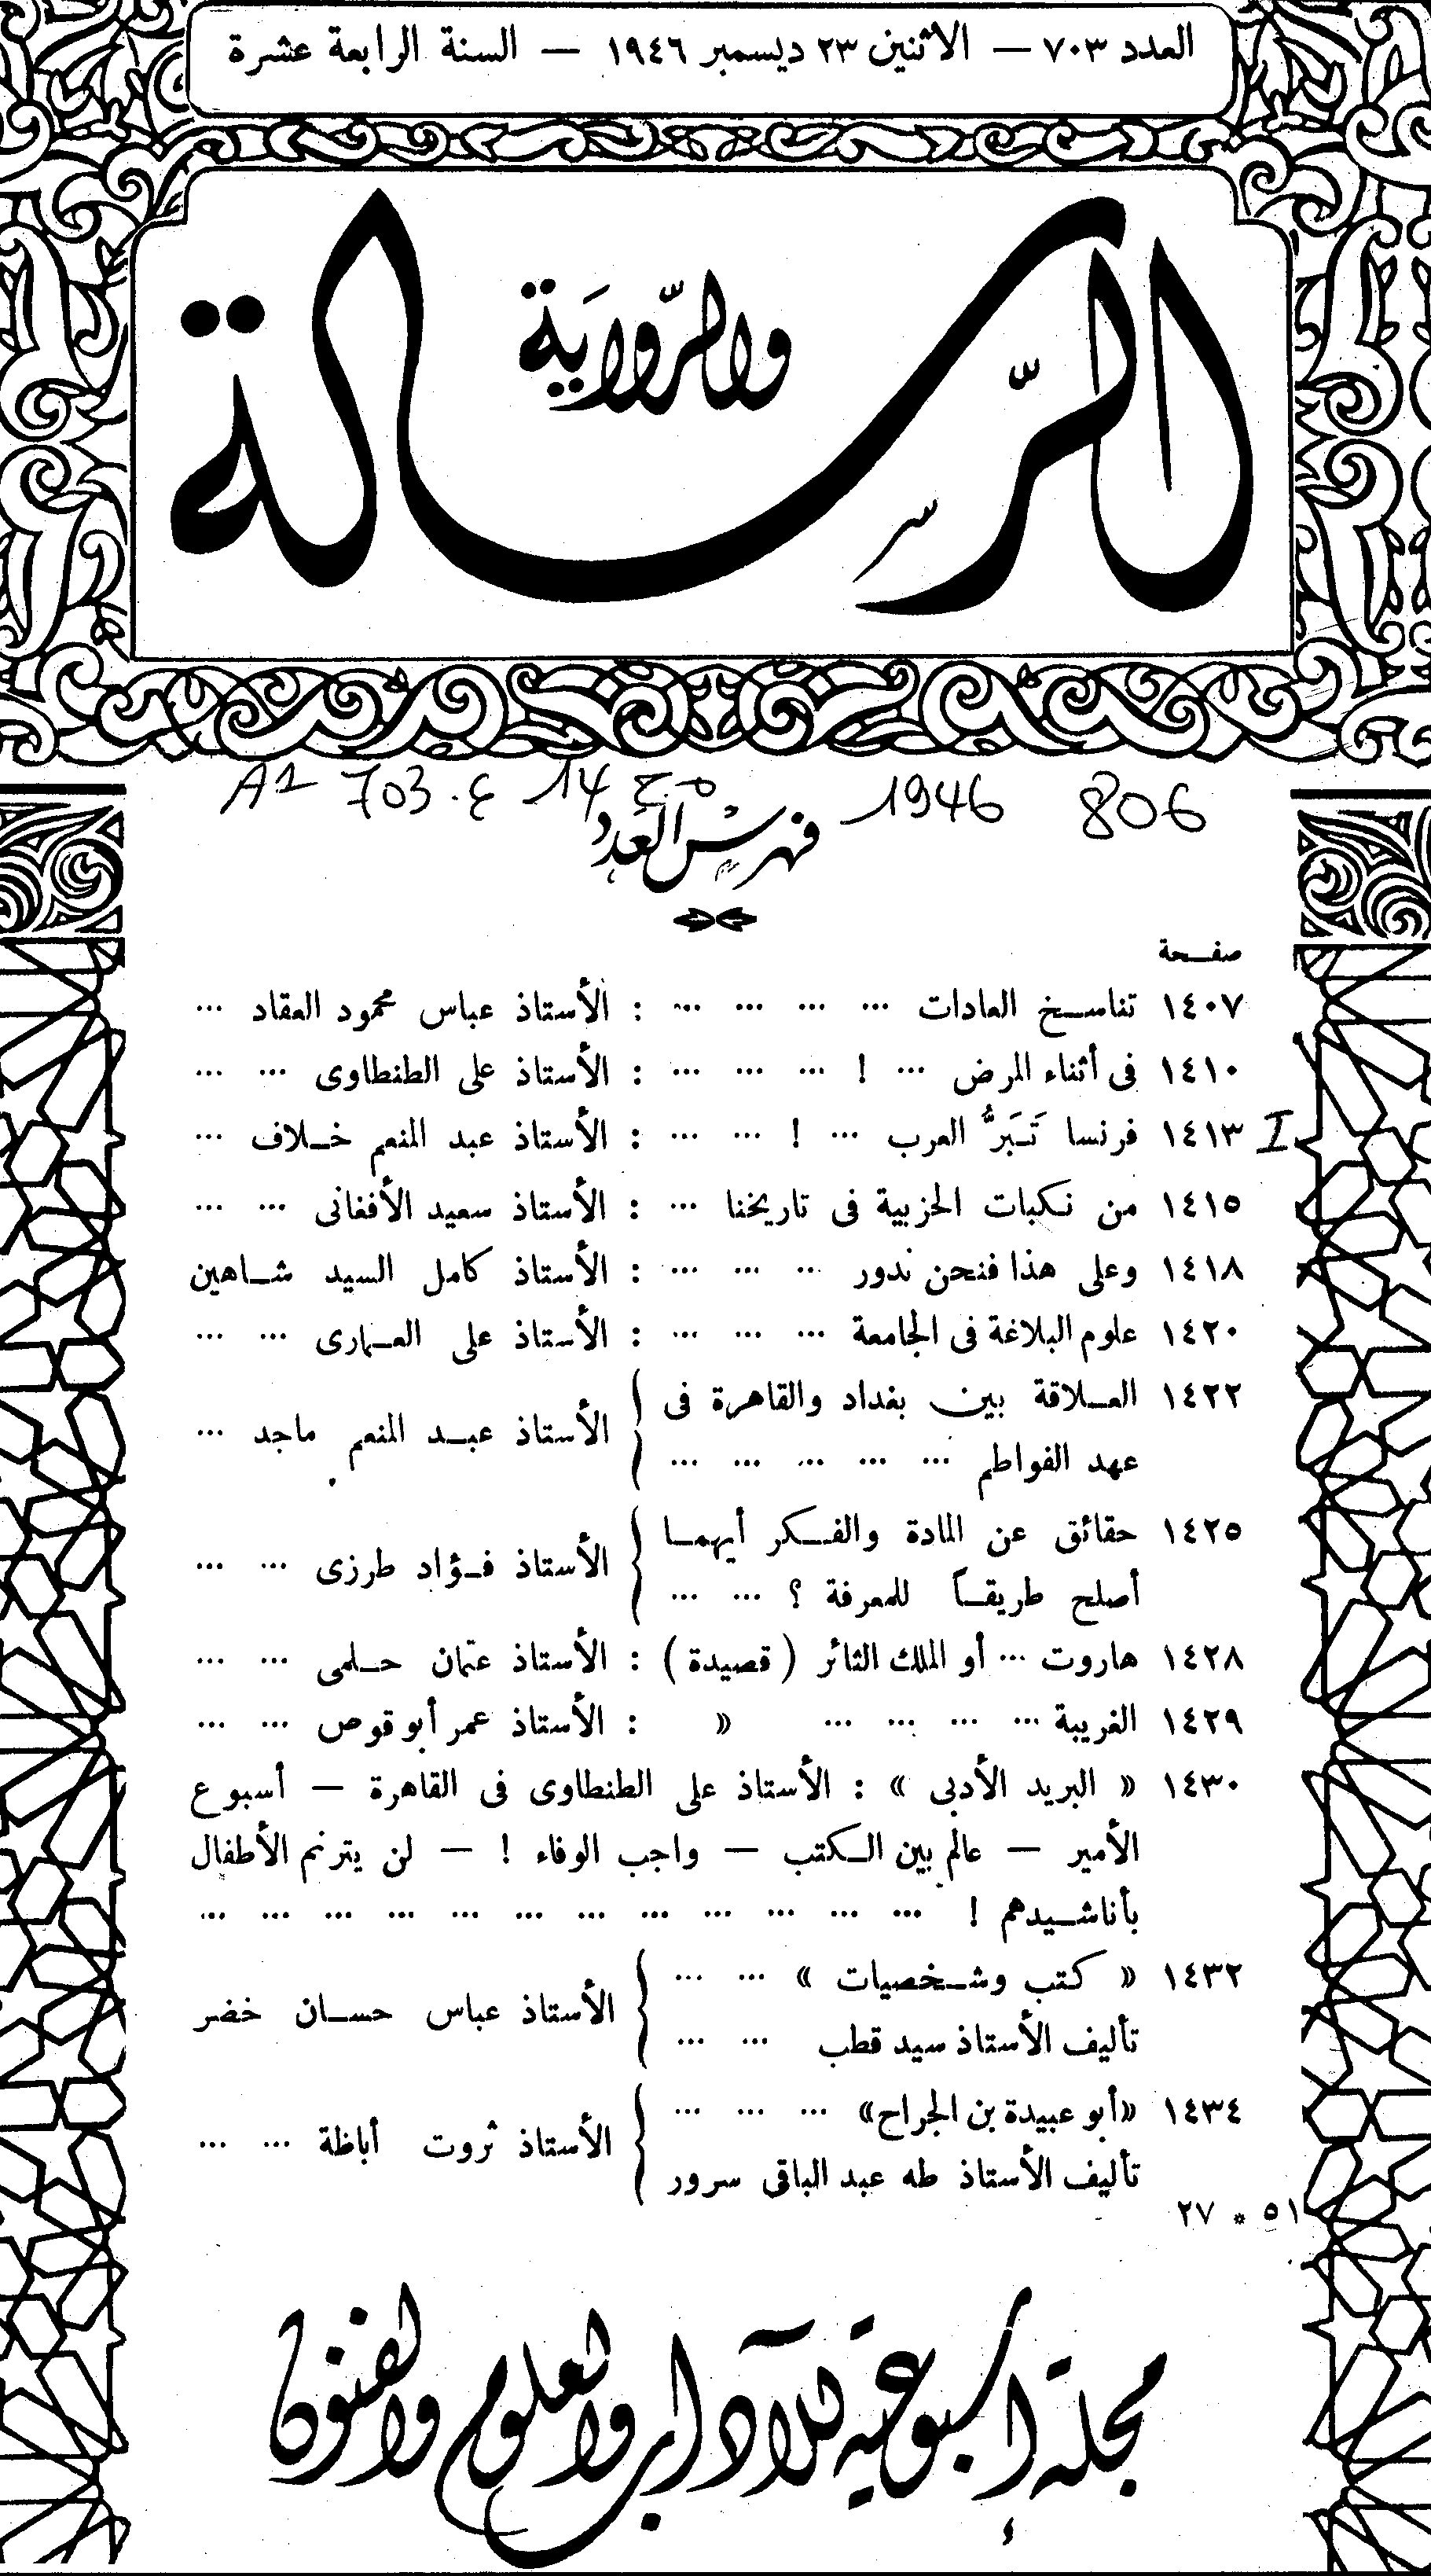 العدد ٧٠٣ — الاثنين ٢٣ ديسمبر ١٩٤٦ — السنة الرابعة عشرة
الرّسالة
والرّواية
A1 703.ع 14 م.ج 1946 806
فهرس العدد
صفحة
١٤٠٧ تناسخ العادات ... ... ... ... : الأستاذ عباس محمود العقاد ...
١٤١٠ فى أثناء المرض ... ! ... ... ... : الأستاذ على الطنطاوى ... ...
I ١٤١٣ فرنسا تَبَرُّ العرب ... ! ... ... : الأستاذ عبد المنعم خلاف ...
١٤١٥ من نكبات الحزبية فى تاريخنا ... : الأستاذ سعيد الأفغانى ... ...
١٤١٨ وعلى هذا فنحن ندور ... ... ... : الأستاذ كامل السيد شاهين
١٤٢٠ علوم البلاغة فى الجامعة ... ... ... : الأستاذ على العمارى ... ...
١٤٢٢ العلاقة بين بغداد والقاهرة فى
عهد الفواطم ... ... ... ... ... } الأستاذ عبد المنعم ماجد ...
١٤٢٥ حقائق عن المادة والفكر أيهما
أصلح طريقاً للمعرفة ؟ ... ... } الأستاذ فؤاد طرزى ... ...
١٤٢٨ هاروت ... أو الملك الثائر ( قصيدة ) : الأستاذ عثمان حلمى ... ...
١٤٢٩ الغريبة ... ... ... ... » : الأستاذ عمر أبو قوص ... ...
١٤٣٠ « البريد الأدبى » : الأستاذ على الطنطاوى فى القاهرة — أسبوع
الأمير — عالم بين الكتب — واجب الوفاء ! — لن يترنم الأطفال
بأناشيدهم ! ... ... ... ... ... ... ... ... ... ... ... ...
١٤٣٢ « كتب وشخصيات » ... ...
تأليف الأستاذ سيد قطب ... ... } الأستاذ عباس حسان خضر
١٤٣٤ «أبو عبيدة بن الجراح» ... ... ...
تأليف الأستاذ طه عبد الباقى سرور } الأستاذ ثروت أباظة ... ...
٥١ * ٢٧
مجلة أسبوعية للآداب والعلوم والفنون